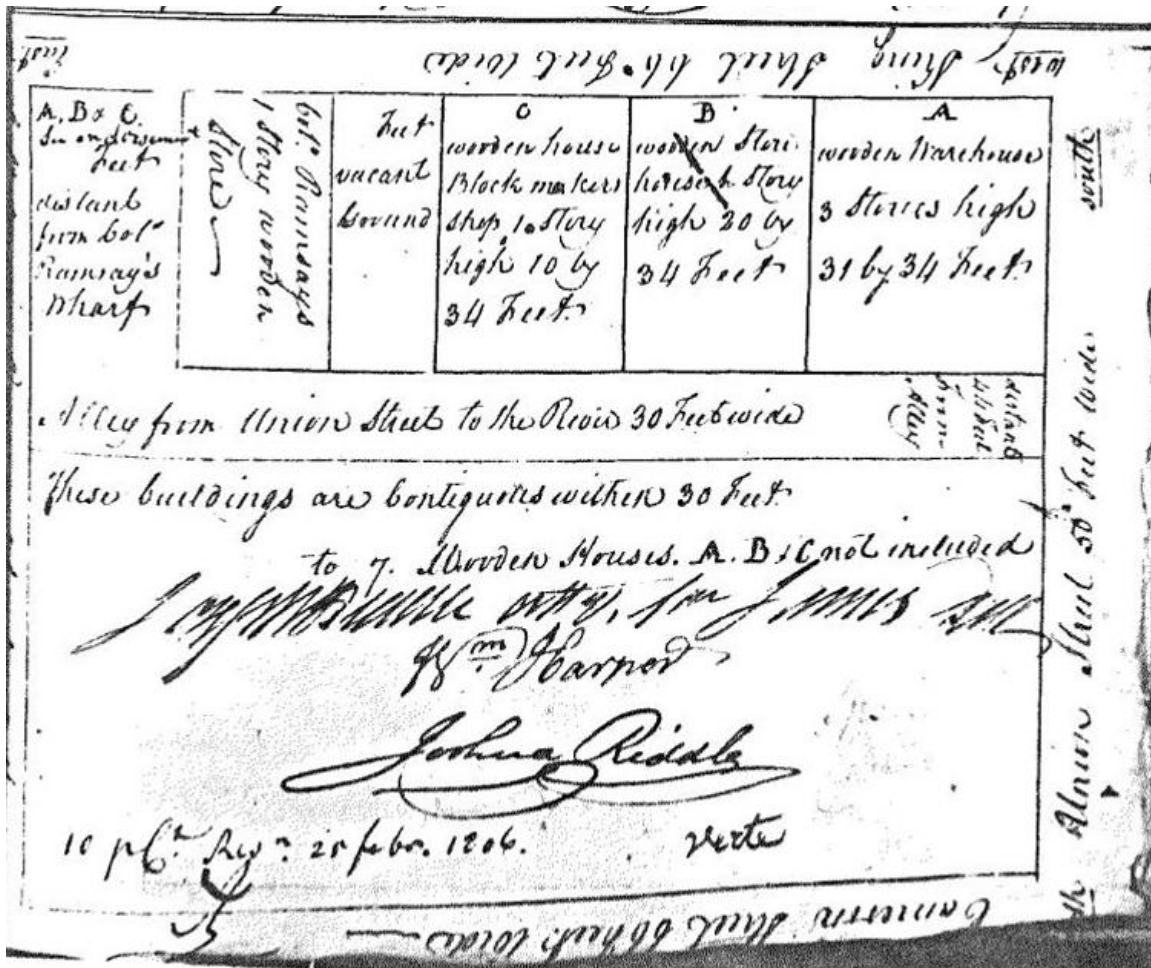 East
King Street 66 Feet Wide
West
A, B & C.
See endorsement
Feet
distant
from Col.o
Ramsay's
Wharf
Col.o Ramsays
1 Story wooden
Store
Feet
vacant
Ground
C
wooden house
Block makers
shop 1 Story
high 10 by
34 Feet
B
wooden Store
house Story
high 20 by
34 Feet
A
wooden Warehouse
3 Stories high
31 by 34 Feet.
south
Union Street 50 Feet Wide
Alley from Union Street to the River 30 Feet wide
distant
Feet
from
Alley
These buildings are Contiguous within 30 Feet
to 7. Wooden Houses. A. B & C not included
atty. for James
Wm Harper
Joshua Riddle
10 p Ct. Feby. 1806.
verte
Cameron Street 66 Feet Wide